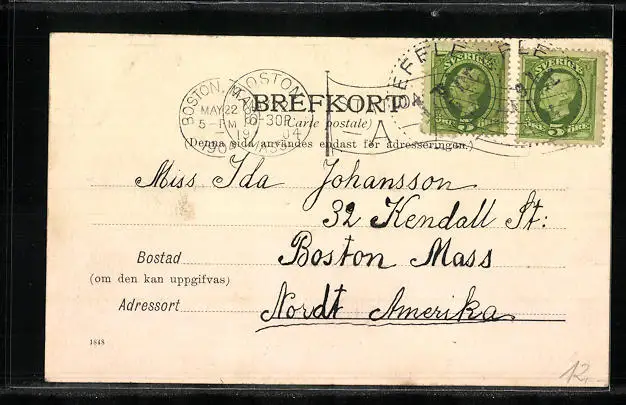 BREFKORT
(Carte postale)
(Denna sida användes endast för adresseringen.)
BOSTON, MASS.
MAY 22
5-PM
1904
BOSTON
-30P
1904
A
GEFLE
GEFLE
SVERIGE
5 ÖRE 5
SVERIGE
5 ÖRE 5
Miss Ida Johansson
32 Kendall St:
Bostad Boston Mass
(om den kan uppgifvas)
Adressort Nordt Amerika
1848
12,-